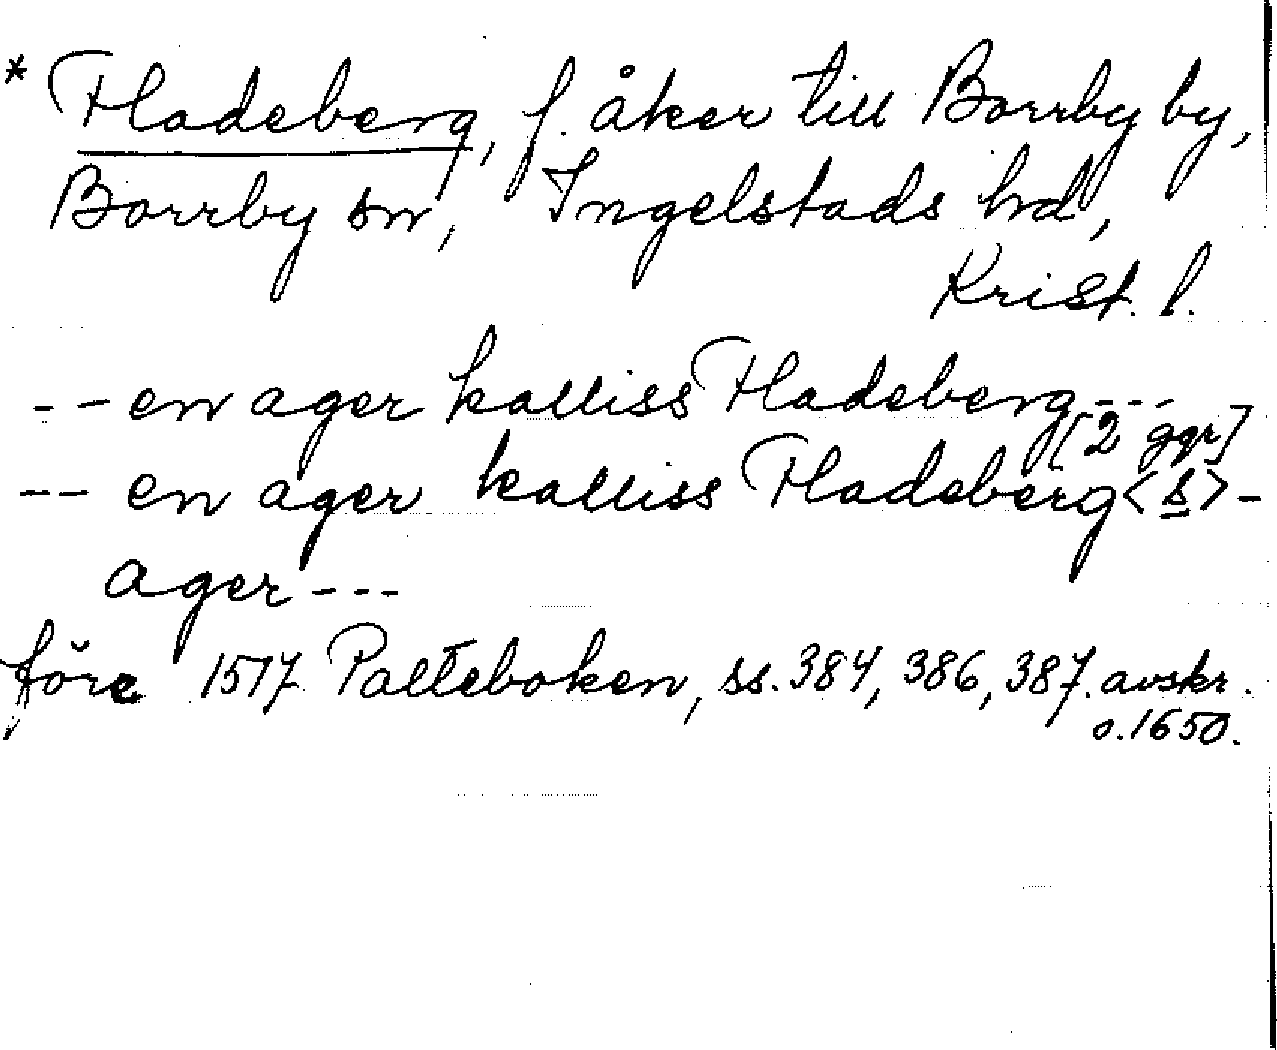 * Fladeberg, f. åker till Borrby by,
Borrby sn, Ingelstads hd,
Krist. l.
-- en ager kalliss Fladeberg---
[2 ggr]
-- en ager kalliss Fladeberg<s>-
ager---
före 1517 Palteboken, ss. 384, 386, 387. avskr.
o. 1650.